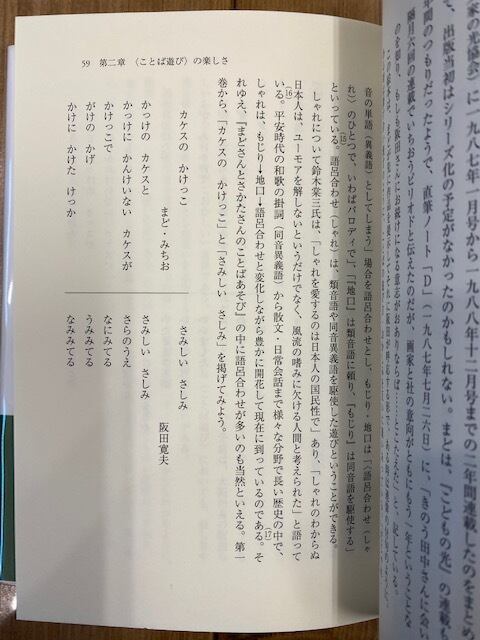 家の光協会）に一九八七年一月号から一九八八年十二月号までの二年間連載したのをまとめ
、出版当初はシリーズ化の予定がなかったのかもしれない。まどは、「こどもの光」の連載
年間のつもりだったようで、直筆ノート「D」（一九八七年七月二六日）に、「きのう田中さんに会
隔月六回の連載でいちおうピリオドと伝えたのだが、画家と社の意向がともにもう一年ということな
のを頼り、もしも阪田さんにお続けになる意志がおありならば……とこたえた」と記している。
59　第二章　〈ことば遊び〉の楽しさ
音の単語（異義語）としてしまう」場合を語呂合わせとし、もじり・地口は「（語呂合わせ（しゃ
れ）のひとつで、いわばパロディで」、「『地口』は類音語に頼り、『もじり』は同音語を駆使する」(15)
といっている。語呂合わせ（しゃれ）は、類音語や同音異義語を駆使した遊びということができる。
しゃれについて鈴木棠三氏は、「しゃれを愛するのは日本人の国民性で」あり、「しゃれのわからぬ
日本人は、ユーモアを解しないというだけでなく、風流の嗜みに欠ける人間と考えられた」と語って
いる。(16)平安時代の和歌の掛詞（同音異義語）から散文・日常会話まで様々な分野で長い歴史の中で、
しゃれは、もじり→地口→語呂合わせと変化しながら豊かに開花して現在に到っているのである。(17)そ
れゆえ、『まどさんとさかたさんのことばあそび』の中に語呂合わせが多いのも当然といえる。第一
巻から、「カケスの　かけっこ」と「さみしい　さしみ」を掲げてみよう。
カケスの　かけっこ
まど・みちお
かっけの　カケスと
かっけに　かんけいない　カケスが
かけっこで
がけの　かげ
かけに　かけた　けっか
さみしい　さしみ
阪田寛夫
さみしい　さしみ
さらのうえ
なにみてる
うみみてる
なみみてる